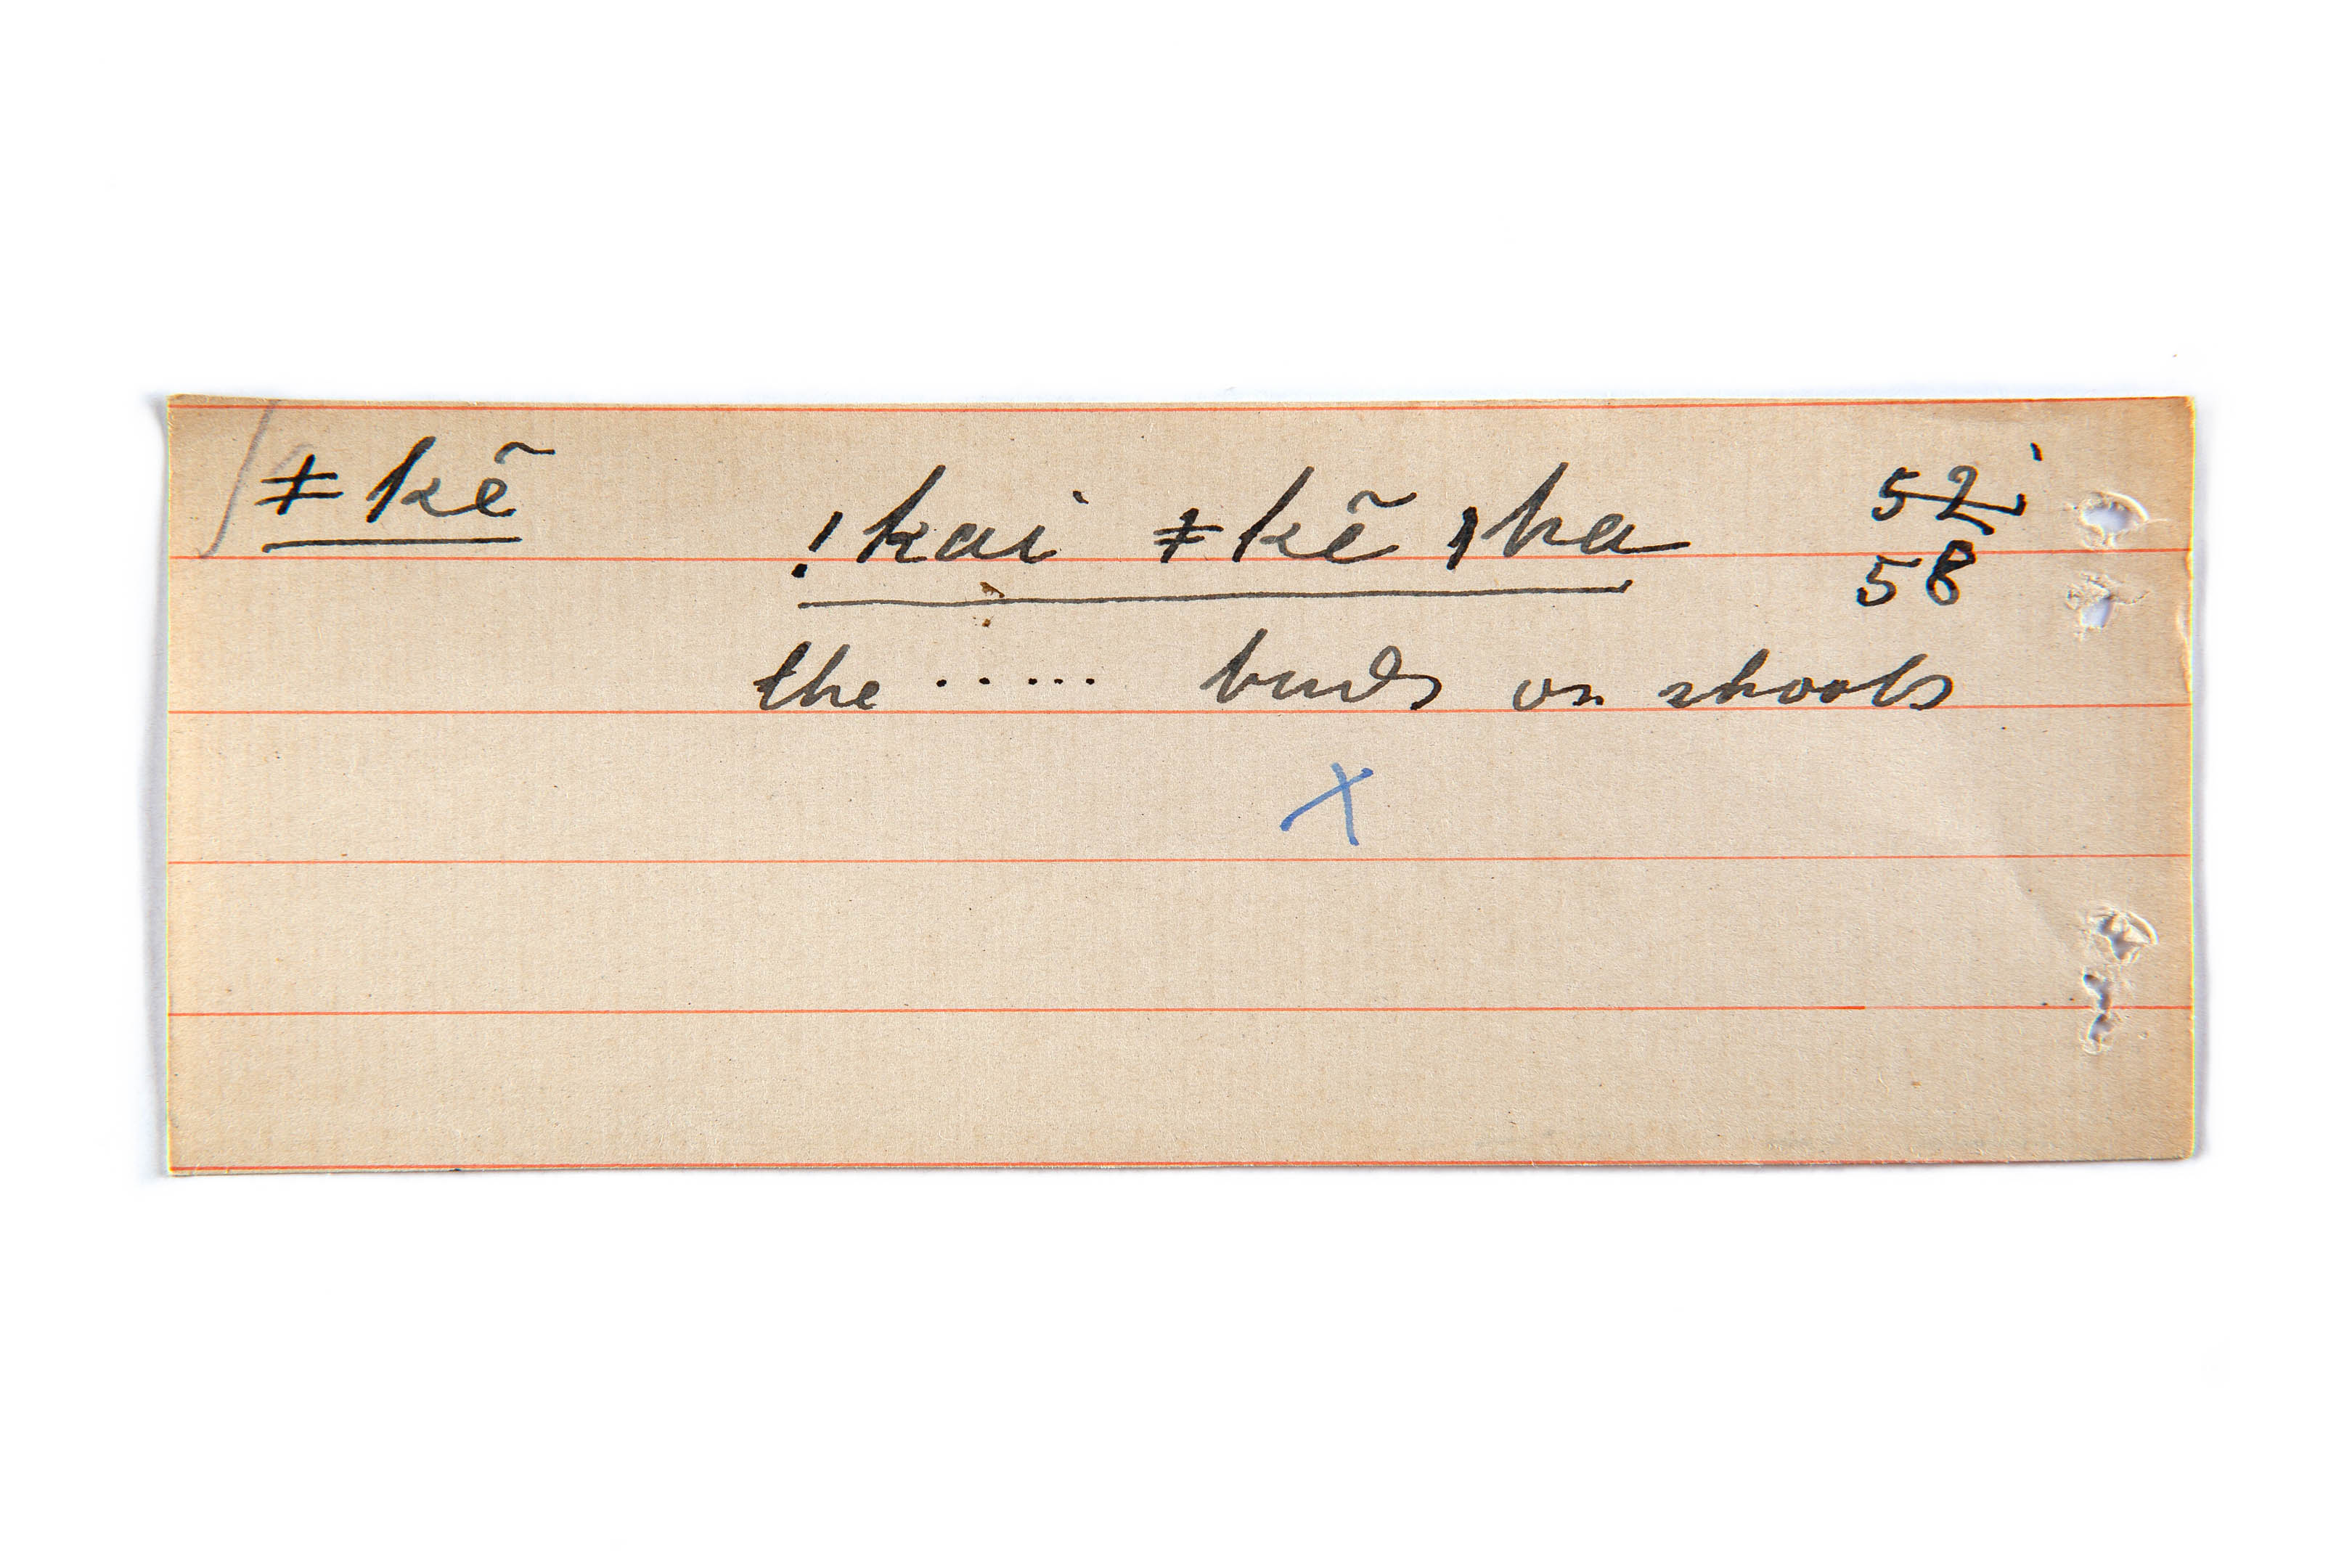 ǂkẽ
!kai ǂkẽ ǀha 52
58
the ..... buds on shoots
x